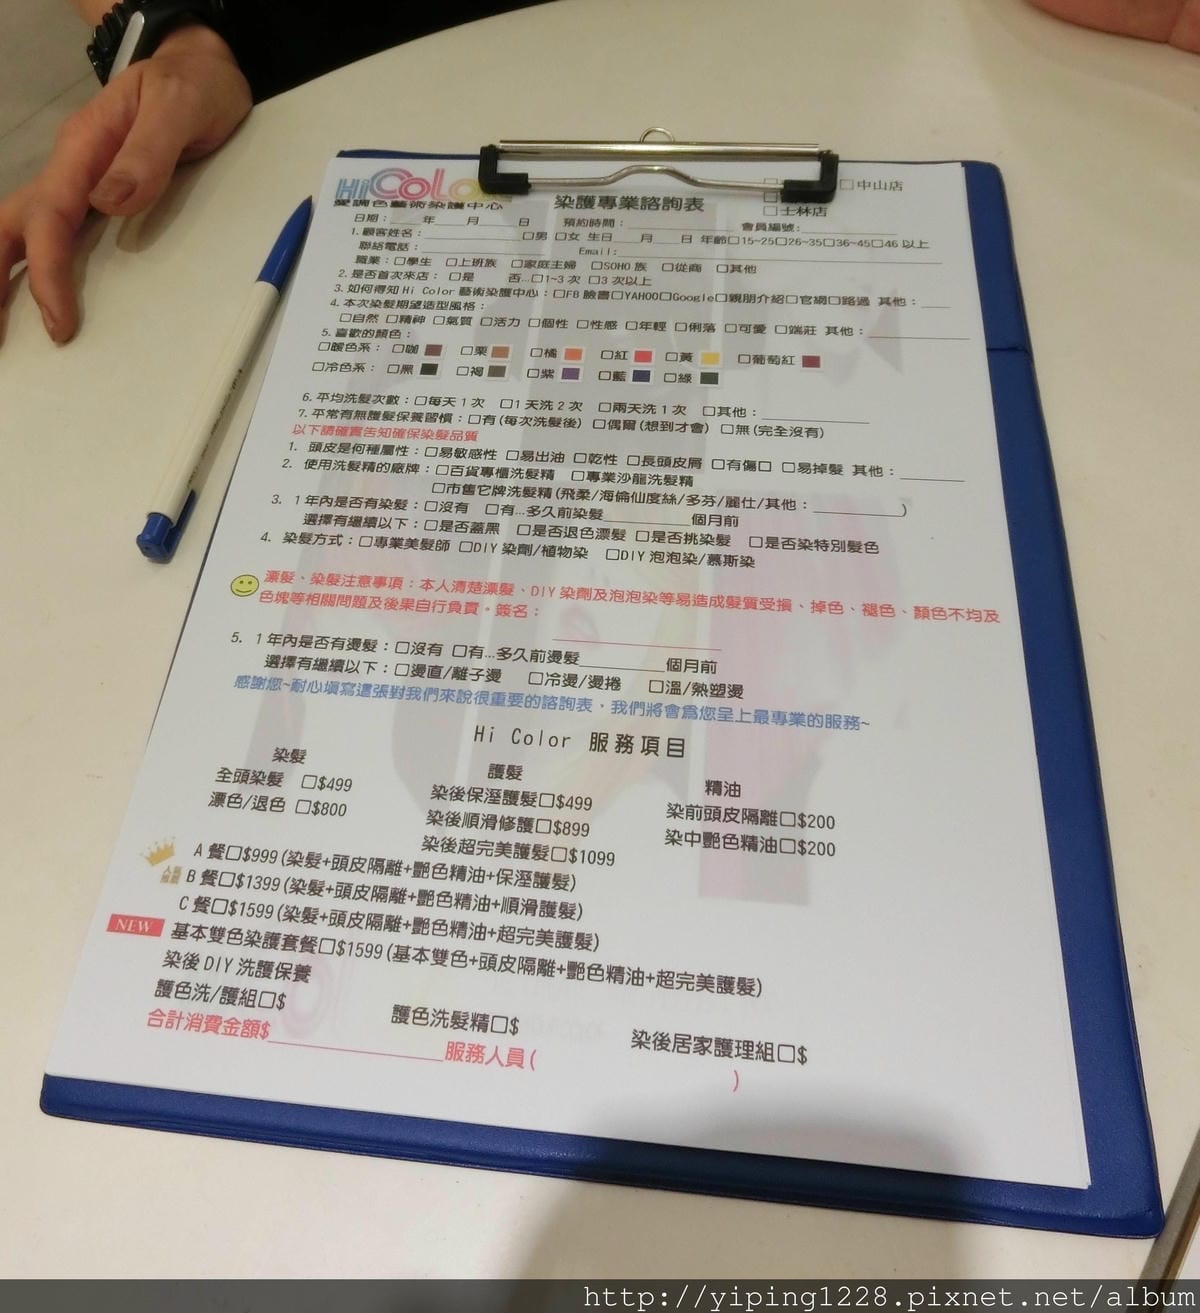 HiColor
愛調色藝術染護中心
染護專業諮詢表
□中山店
□士林店
日期：____年____月____日 預約時間：__________ 會員編號：__________
1.顧客姓名：__________ □男 □女 生日____月____日 年齡□15~25□26~35□36~45□46以上
聯絡電話：__________ Email:__________
職業：□學生 □上班族 □家庭主婦 □SOHO族 □從商 □其他
2.是否首次來店： □是 否…□1~3次 □3次以上
3.如何得知Hi Color藝術染護中心：□FB臉書□YAHOO□Google□親朋介紹□官網□路過 其他：____
4.本次染髮期望造型風格：
□自然 □精神 □氣質 □活力 □個性 □性感 □年輕 □俐落 □可愛 □端莊 其他：__________
5.喜歡的顏色：
□暖色系： □咖 □栗 □橘 □紅 □黃 □葡萄紅
□冷色系： □黑 □褐 □紫 □藍 □綠
6.平均洗髮次數：□每天1次 □1天洗2次 □兩天洗1次 □其他：__________
7.平常有無護髮保養習慣：□有(每次洗髮後) □偶爾(想到才會) □無(完全沒有)
以下請確實告知確保染髮品質
1. 頭皮是何種屬性：□易敏感性 □易出油 □乾性 □長頭皮屑 □有傷口 □易掉髮 其他：________
2. 使用洗髮精的廠牌：□百貨專櫃洗髮精 □專業沙龍洗髮精
□市售它牌洗髮精(飛柔/海倫仙度絲/多芬/麗仕/其他：__________)
3. 1年內是否有染髮：□沒有 □有…多久前染髮__________個月前
選擇有繼續以下：□是否蓋黑 □是否退色漂髮 □是否挑染髮 □是否染特別髮色
4. 染髮方式：□專業美髮師 □DIY染劑/植物染 □DIY泡泡染/慕斯染
漂髮、染髮注意事項：本人清楚漂髮、DIY染劑及泡泡染等易造成髮質受損、掉色、褪色、顏色不均及
色塊等相關問題及後果自行負責。簽名：__________
5. 1年內是否有燙髮：□沒有 □有…多久前燙髮__________個月前
選擇有繼續以下：□燙直/離子燙 □冷燙/燙捲 □溫/熱塑燙
感謝您~耐心填寫這張對我們來說很重要的諮詢表，我們將會為您呈上最專業的服務~
Hi Color 服務項目
染髮 護髮 精油
全頭染髮 □$499 染後保溼護髮□$499 染前頭皮隔離□$200
漂色/退色 □$800 染後順滑修護□$899 染中艷色精油□$200
染後超完美護髮□$1099
A餐□$999(染髮+頭皮隔離+艷色精油+保溼護髮)
B餐□$1399(染髮+頭皮隔離+艷色精油+順滑護髮)
C餐□$1599(染髮+頭皮隔離+艷色精油+超完美護髮)
NEW 基本雙色染護套餐□$1599(基本雙色+頭皮隔離+艷色精油+超完美護髮)
染後DIY洗護保養
護色洗/護組□$ 護色洗髮精□$ 染後居家護理組□$
合計消費金額$__________服務人員( )
http://yiping1228.pixnet.net/album